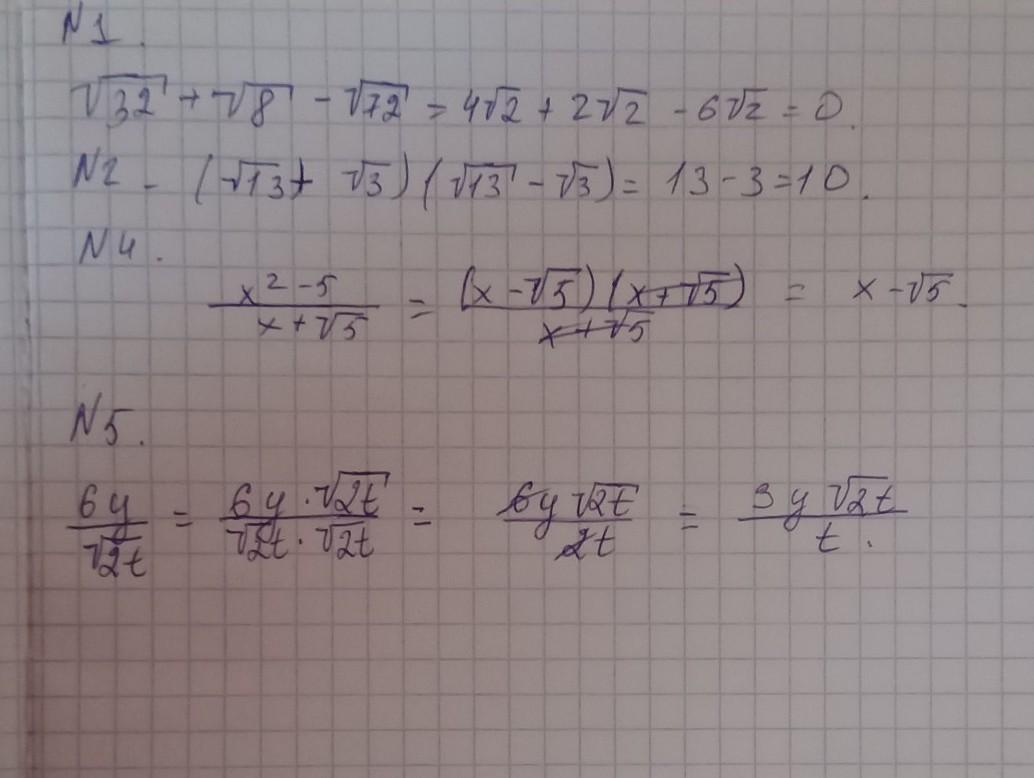 N1.
√32 + √8 - √72 = 4√2 + 2√2 - 6√2 = 0.
N2 - (√13 + √3)(√13 - √3) = 13 - 3 = 10.
N4.
(x² - 5)/(x + √5) = ((x - √5)(x + √5))/(x + √5) = x - √5.
N5.
6y/√2t = (6y · √2t)/(√2t · √2t) = 6y√2t/2t = 3y√2t/t.